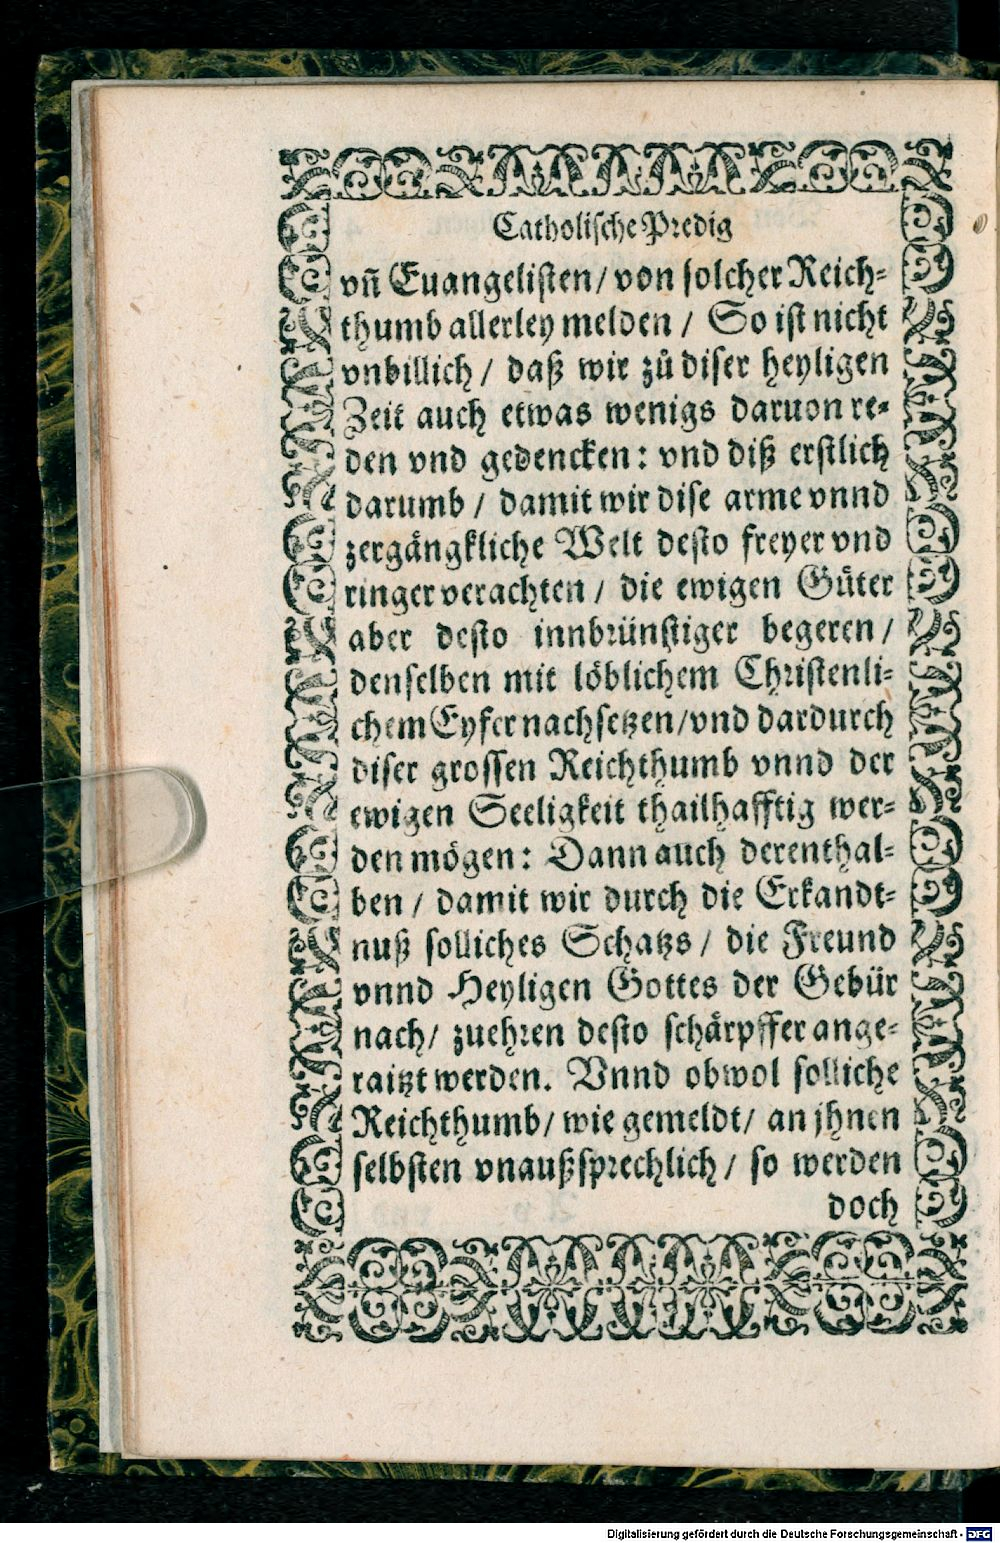 Catholische Predig
vñ Euangelisten / von solcher Reich-
thumb allerley melden / So ist nicht
vnbillich / daß wir zů diser heyligen
Zeit auch etwas wenigs daruon re-
den vnd gedencken: vnd diß erstlich
darumb / damit wir dise arme vnnd
zergängkliche Welt desto freyer vnd
ringer verachten / die ewigen Güter
aber desto innbrünstiger begeren /
denselben mit löblichem Christenli-
chem Eyfer nachsetzen / vnd dardurch
diser grossen Reichthumb vnnd der
ewigen Seeligkeit thailhafftig wer-
den mögen: Dann auch derenthal-
ben / damit wir durch die Erkandt-
nuß solliches Schatzs / die Freund
vnnd Heyligen Gottes der Gebür
nach / zuehren desto schärpffer ange-
raitzt werden. Vnnd obwol solliche
Reichthumb / wie gemeldt / an jhnen
selbsten vnaußsprechlich / so werden
doch
Digitalisierung gefördert durch die Deutsche Forschungsgemeinschaft - DFG